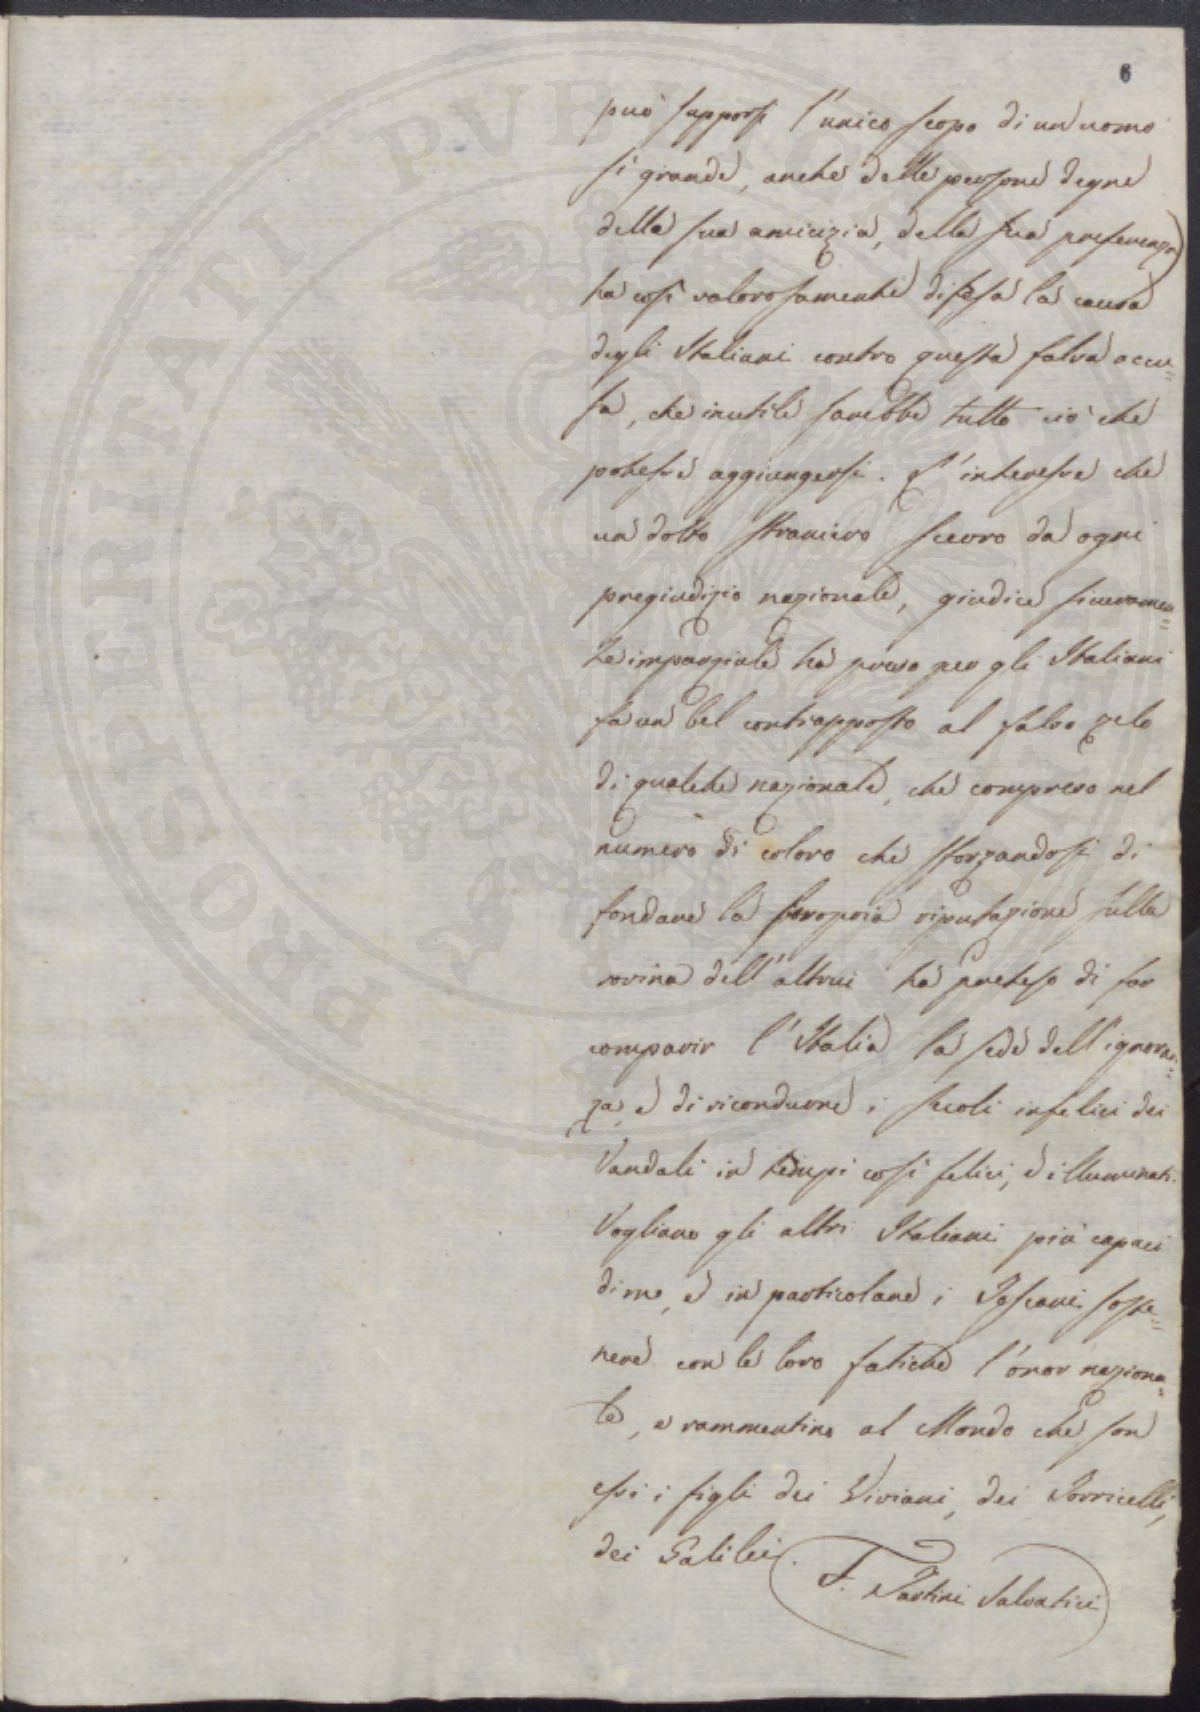 6
può supporsi l'unico scopo di un'uomo
sì grande, anche delle persone degne
della sua amicizia, della sua preferenza)
ha così valorosamente difesa la causa
degli Italiani contro questa falsa accu=
sa, che inutile sarebbe tutto ciò che
potesse aggiungersi. L'interesse che
un dotto straniero scevro da ogni
pregiudizio nazionale, giudice sicuramen=
te imparziale ha preso per gli Italiani
fa un bel contrapposto al falso zelo
di qualche nazionale, che compreso nel
numero di coloro che sforzandosi di
fondare la propria riputazione sulla
rovina dell'altrui ha preteso di far
comparir l'Italia la sede dell'ignoran=
za, e di ricondurre i secoli infelici dei
Vandali in tempi così felici, e illuminati.
Vogliano gli altri Italiani più capaci
di me, e in particolare i Toscani soste=
nere con le loro fatiche l'onor naziona=
le, e rammentino al Mondo che son
essi i figli dei Viviani, dei Torricelli,
dei Galilei.
F. Tartini Salvatici
PROSPERITATI PVBLICAE